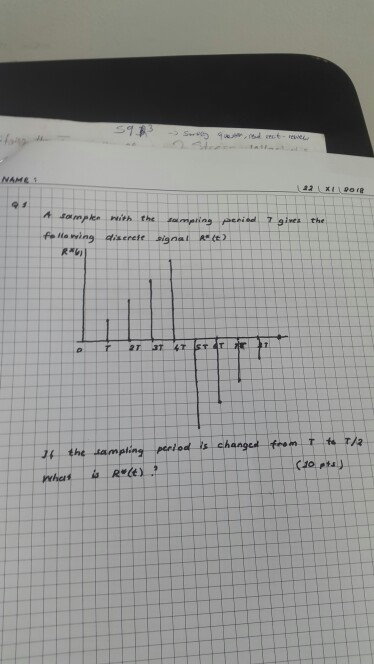 NAME :
22 \ XI \ 2018
Q1
A sampler with the sampling period T gives the
following discrete signal R*(t)
R*(t)
0 T 2T 3T 4T 5T 6T 7T 8T
If the sampling period is changed from T to T/2
What is R*(t) ?
(10 pts.)